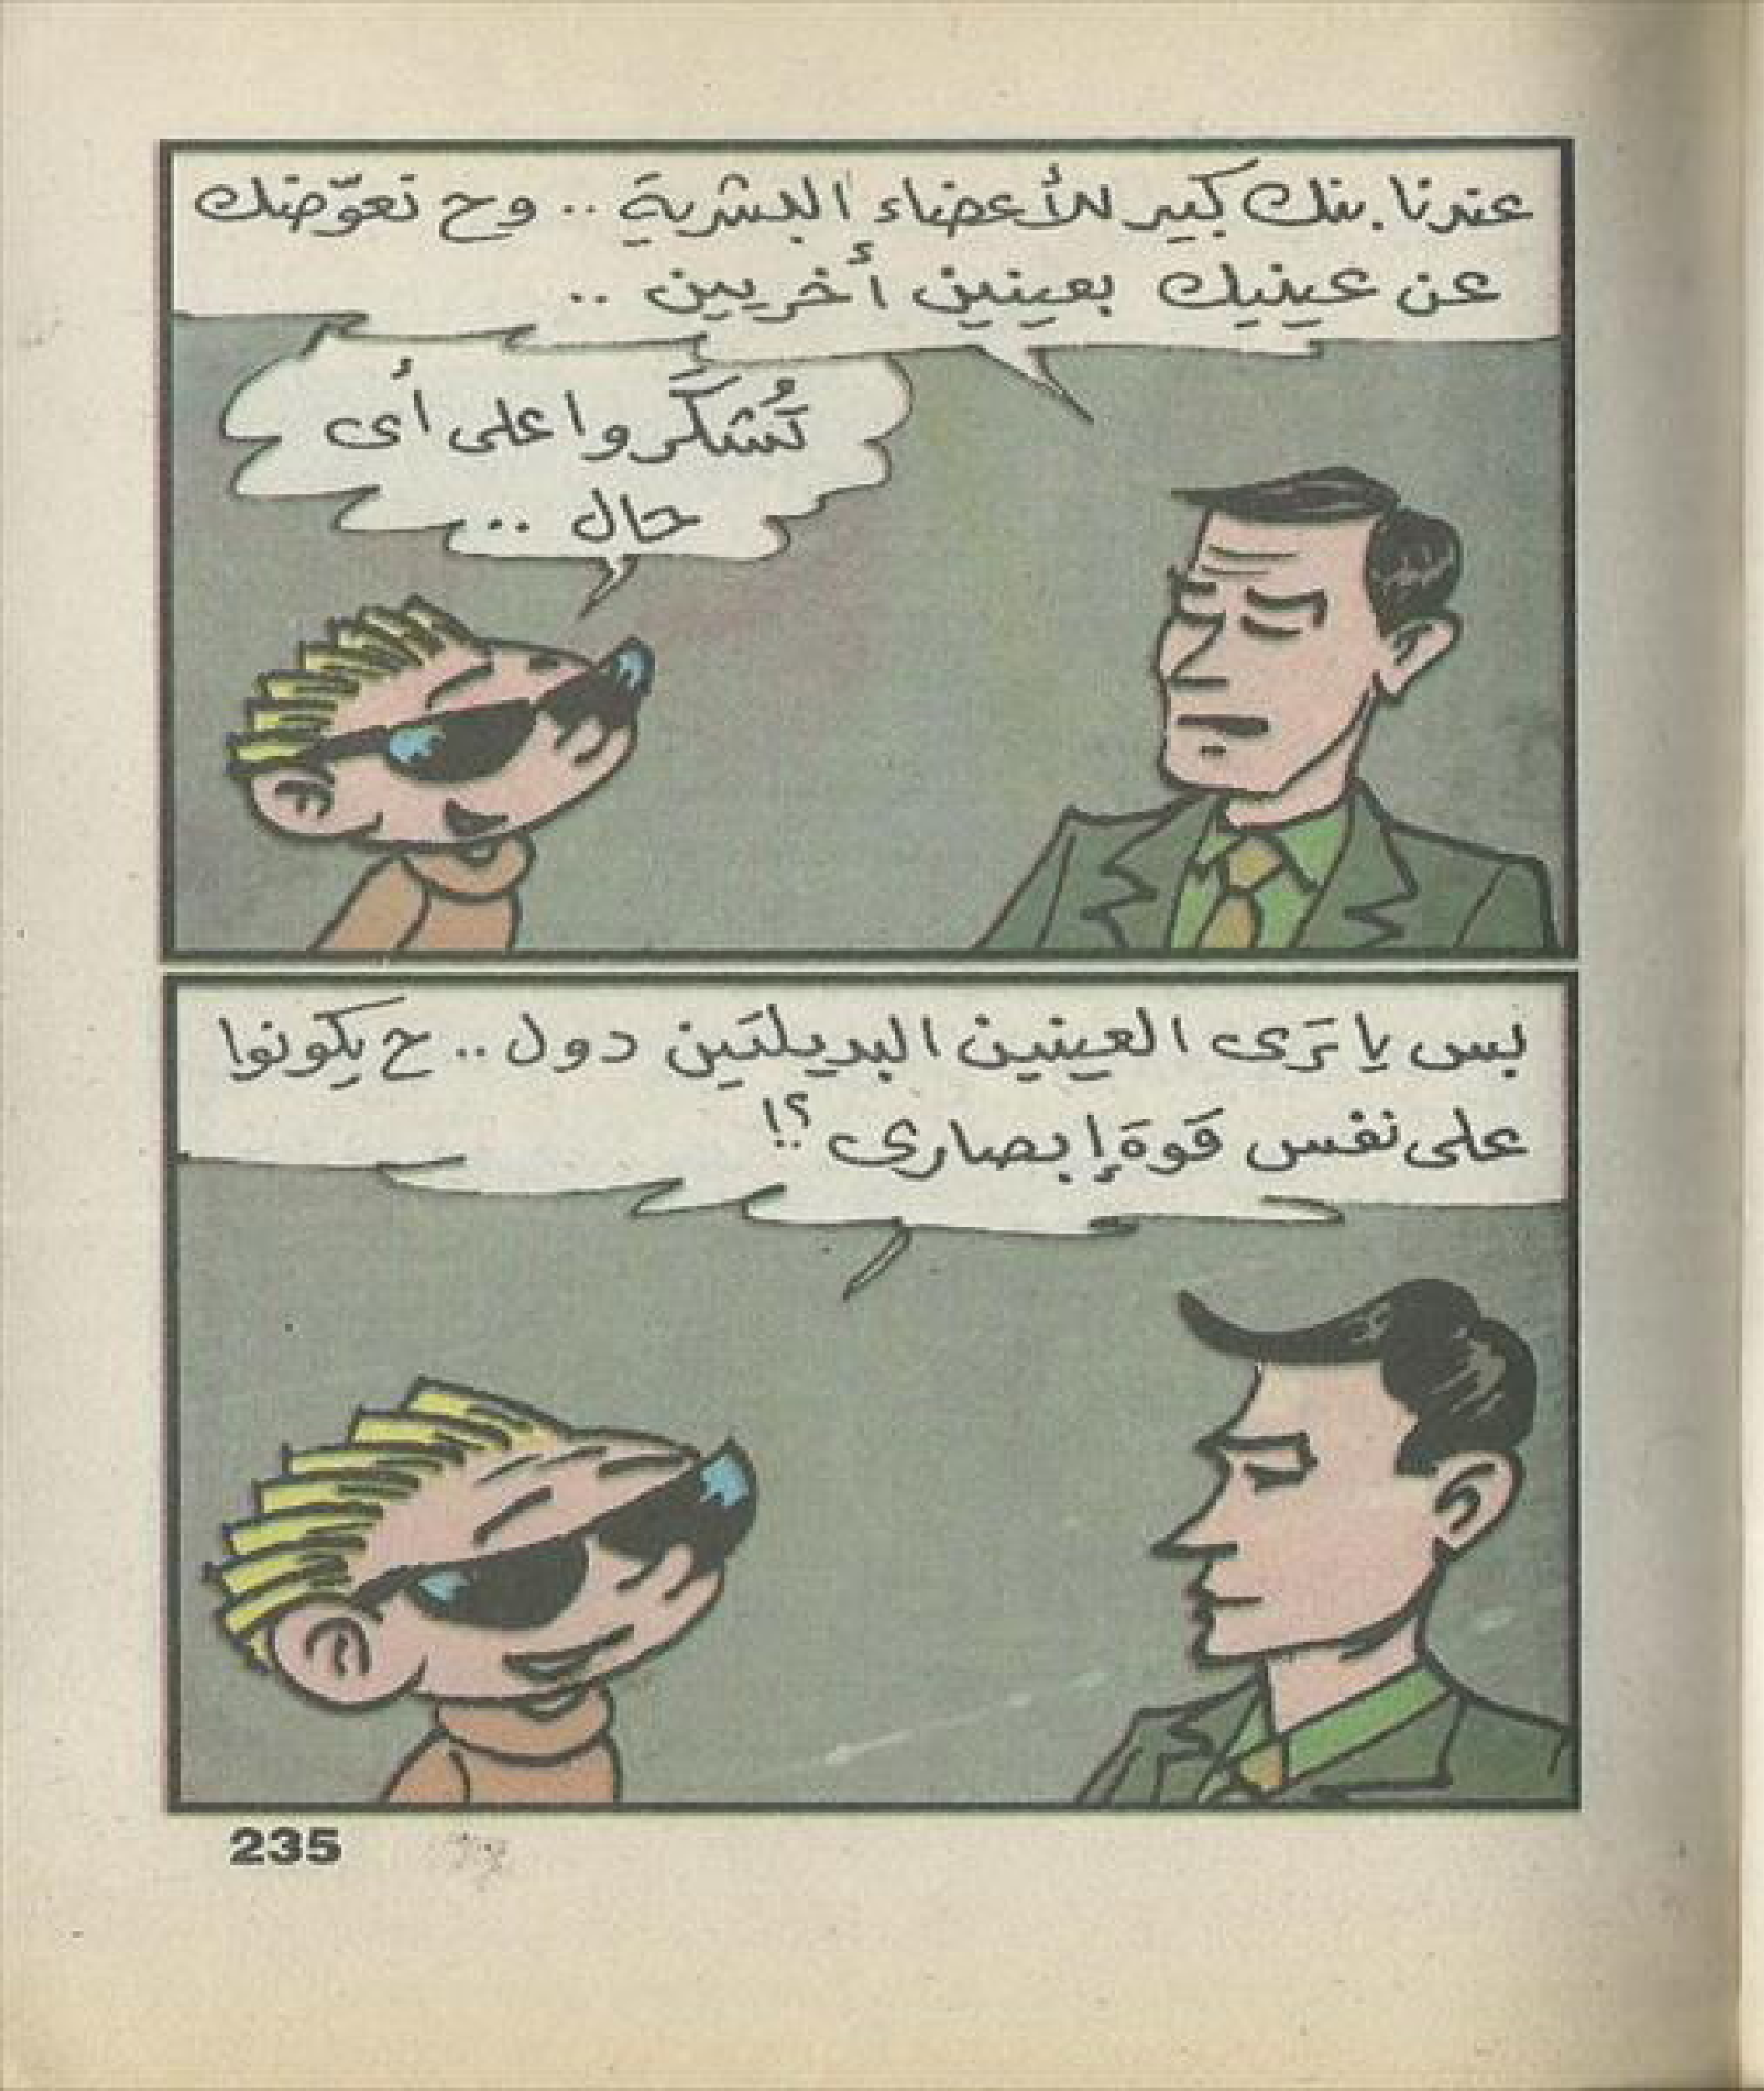 عندنا بنك كبير للأعضاء البشرية .. وح نعوّضك
عن عينيك بعينين أخريين ..
تُشكَروا على أى
حال ..
بس يا تَرى العينين البديلتين دول .. ح يكونوا
على نفس قوة إبصارى ؟!
235